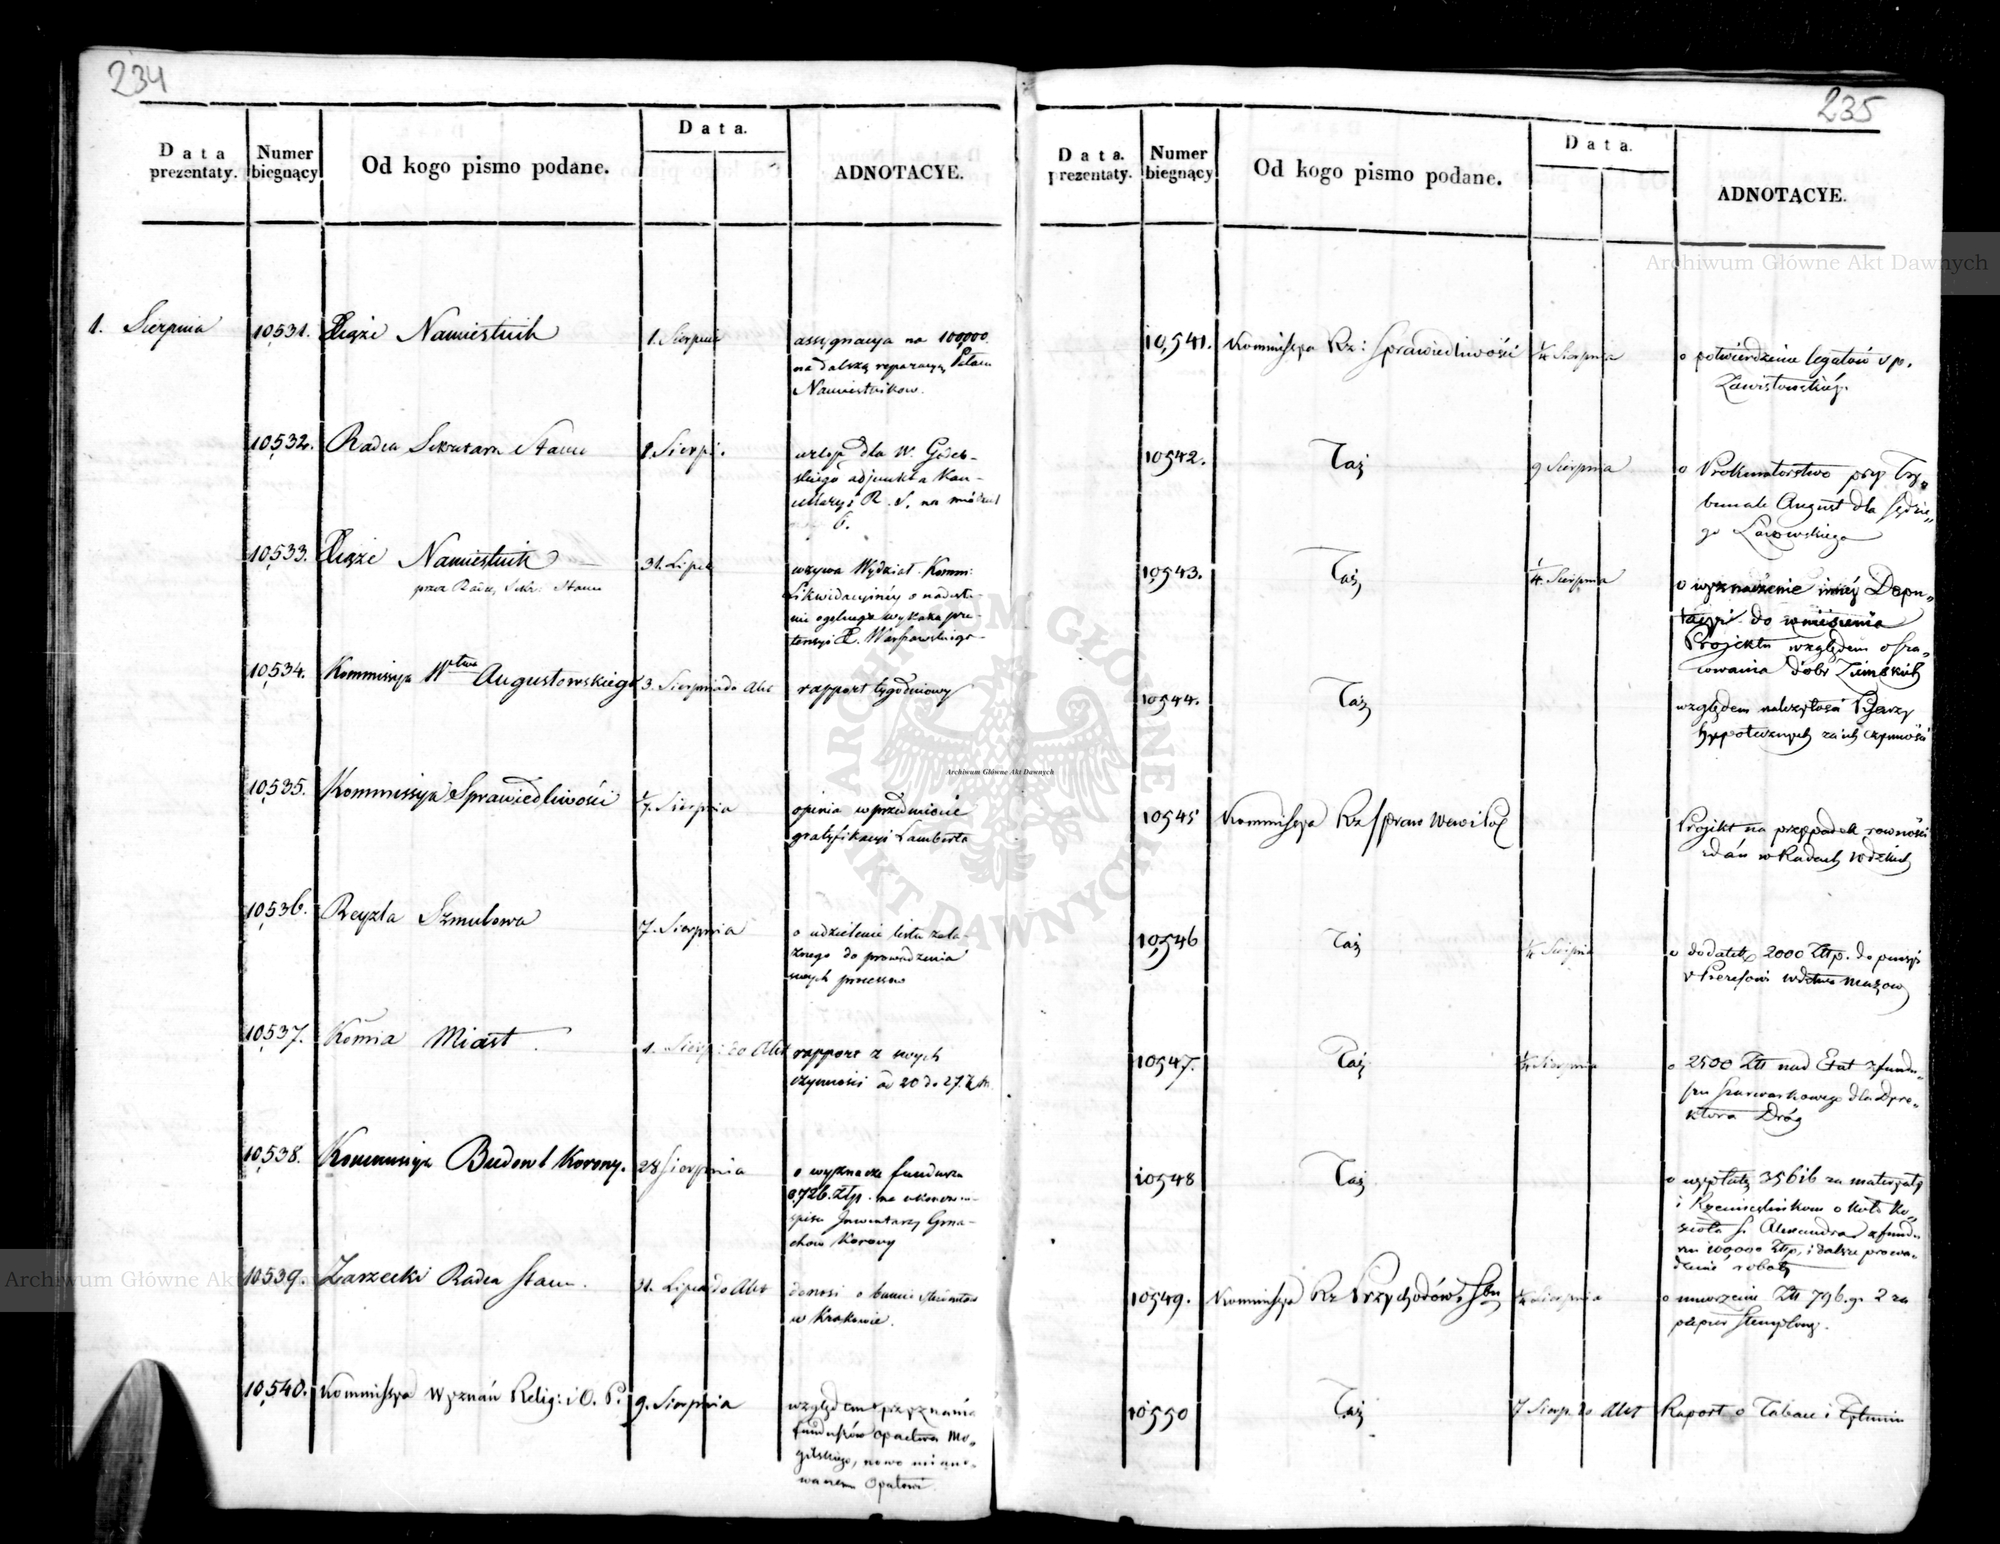 234
Data prezentaty.
Numer biegnący
Od kogo pismo podane.
Data.
ADNOTACYE.
1. Sierpnia
10,531. Xiąże Namiestnik
1. Sierpnia
assygnacya na 100,000
na dalszą reparacyą Pałacu
Namiestników.
10,532. Radca Sekretarz Stanu
1. Sierp.
urlop dla W.
adjunkta Kan-
cellaryi R. S. na
6.
10,533. Xiąże Namiestnik
przez Radcę Sekr: Stanu
31. Lipca
wzywa Wydział Komm:
Likwidacyiney o nadesła-
nie ogólnego wykazu pre-
tensyi X. Warszawskiego
10,534. Kommissya Wtwa Augustowskiego
3. Sierpnia do Akt
rapport tygodniowy
10,535. Kommissya Sprawiedliwości
Sierpnia
opinia w przedmiocie
gratyfikacyi Lamberta
10,536. Reyzla Szmulowa
7. Sierpnia
o udzielenie listu żela-
znego do prowadzenia
swych processow
10,537. Kom̃ia Miast
1. Sierp: do Akt
rapport z swych
czynności od 20 do 27. z. m.
10,538. Kommissya Budowl Korony.
28 Sierpnia
o wyznacze funduszu
726. Złp. na
spisu Inwentarzy Gma-
chow Korony
10,539. Zarzecki Radca Stanu.
31. Lipca do Akt
donosi o
w Krakowie.
10,540. Kommissya Wyznań Relig: i O. P.
9. Sierpnia
względem przyznania
funduszów opactwa Mo-
gilskiego, nowo miano-
wanem Opatowi.
235
Data. prezentaty.
Numer biegnący
Od kogo pismo podane.
Data.
ADNOTACYE.
10,541. Kommissya Rz: Sprawiedliwości
Sierpnia
o potwierdzenie legatów ś p.
Zawistowskiego
10,542. Taż
9 Sierpnia
o Prokuratorstwo przy Try-
bunale August dla Sędzie-
go
10,543. Taż
Sierpnia
o wyznaczenie inney Depu-
tacyi do wniesienia
Projektu względem osza-
cowania dóbr Ziemskich
10,544. Taż
względem należytości Pisarzy
hypotecznych za ich czynności
10,545 Kommissya Rz Spraw Wew i Pol
Projekt na przypadek równości
zdań w Radach Wdzkich
10,546 Taż
Sierpnia
o dodatek 2000 Złlp. do pensyi
V Prezesowi wdztwa Mazow
10,547. Taż
Sierpnia
o 2500 Złł nad Etat z fundu-
szu szarwarkowego dla Dyre-
ktora Dróg
10,548 Taż
o wypłatę 35616 za materyały
i Rzemieślnikom około Ko-
scioła S. Alexandra z fundu
nu 100,000 Złlp. i dalsze prowa-
dzenie roboty
10,549. Kommissya Rz Przychodów i Sbu
Sierpnia
o umorzenie Złł 796. g. 2 za
papier stemplowy.
10,550 Taż
7 Sierp. do Akt
Raport o Tabace i Tytuniu
Archiwum Główne Akt Dawnych
ARCHIWUM GŁÓWNE AKT DAWNYCH
Archiwum Główne Akt Dawnych